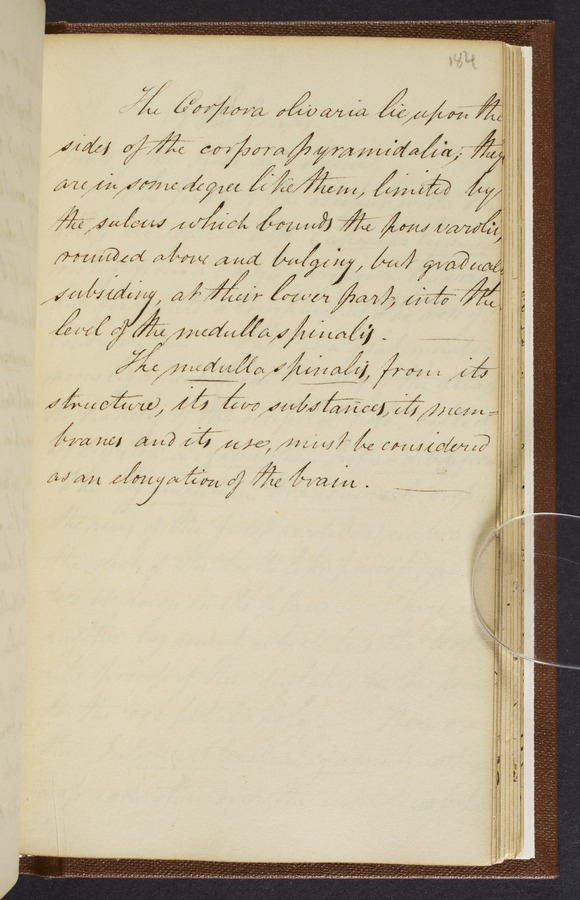 184
The Corpora olivaria lie upon the
sides of the corpora pyramidalia; they
are in some degree like them, limited by
the sulcus which bounds the pons varolii,
rounded above and bulging, but gradually
subsiding, at their lower part, into the
level of the medulla spinalis.
The medulla spinalis, from its
structure, its two substances, its mem=
branes and its use, must be considered
as an elongation of the brain.